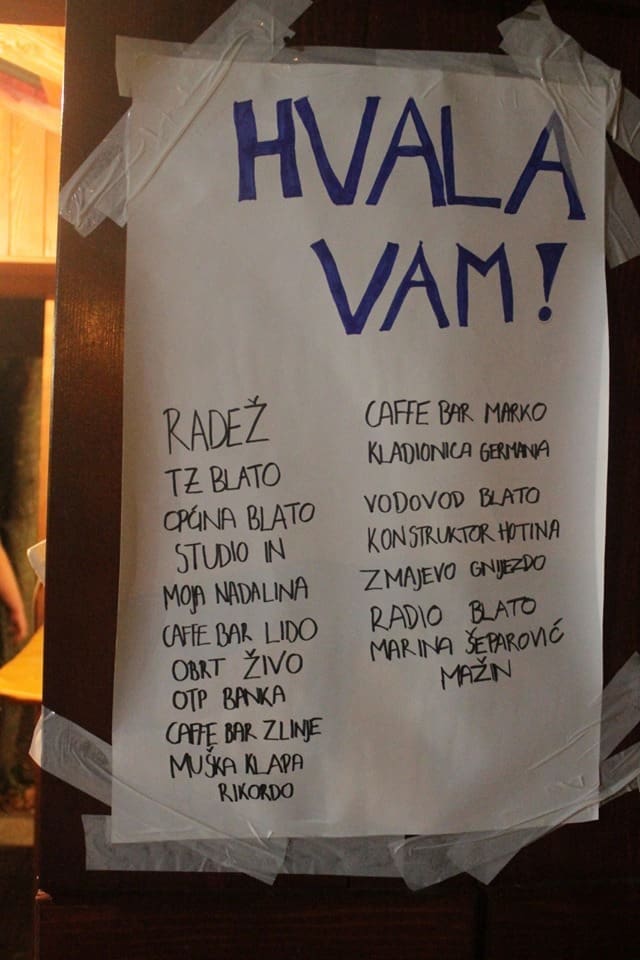 HVALA
VAM!
RADEŽ
TZ BLATO
OPĆINA BLATO
STUDIO IN
MOJA NADALINA
CAFFE BAR LIDO
OBRT ŽIVO
OTP BANKA
CAFFE BAR ZLINJE
MUŠKA KLAPA
RIKORDO
CAFFE BAR MARKO
KLADIONICA GERMANIA
VODOVOD BLATO
KONSTRUKTOR HOTINA
ZMAJEVO GNIJEZDO
RADIO BLATO
MARINA ŠEPAROVIĆ
MAŽIN